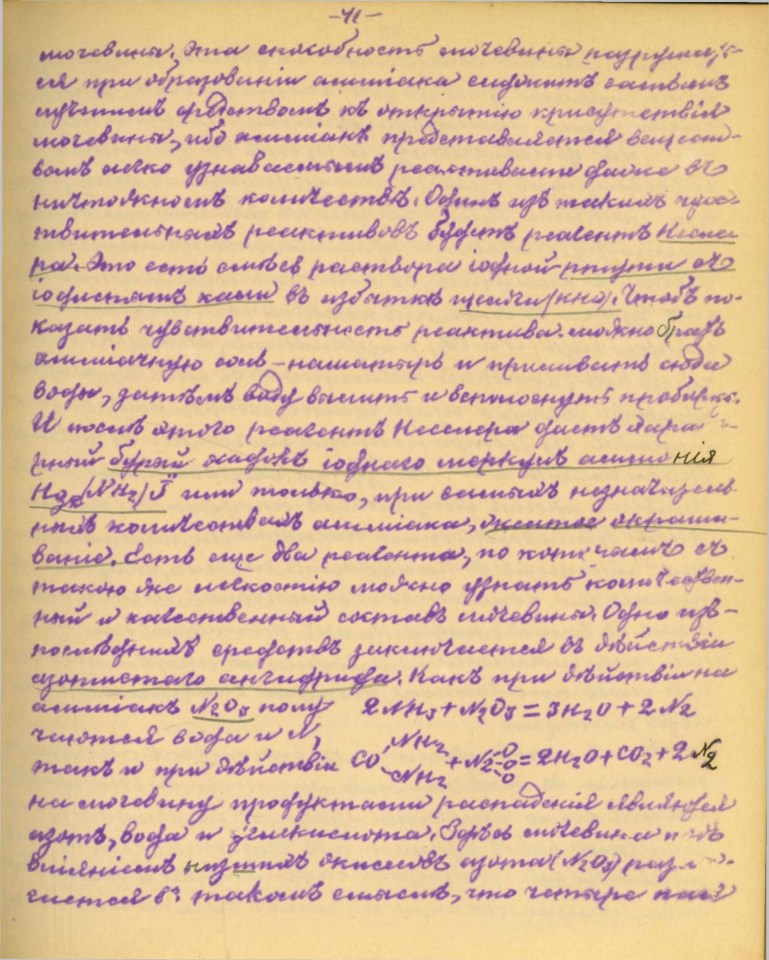 -41-
мочевины. Эта способность мочевины
ся при образованіи амміака служитъ
средствомъ къ открытію присутствія
мочевины, ибо амміакъ представляется вещест-
вомъ легко узнаваемымъ реактивами даже въ
ничтожномъ количествѣ. Однимъ изъ такихъ чувс-
твительныхъ реактивовъ будетъ реагентъ Несле-
ра. Это есть смѣсь раствора іодной ртути съ
іодистымъ кали въ избыткѣ щелочи (кно). Чтобъ по-
казать чувствительность реактива можно брать
амміачную соль - нашатырь и приливать сюда
воды, затѣмъ воду вылить и всполоснуть пробирку.
И послѣ этого реагентъ Несслера даетъ
бурый осадокъ іоднаго меркуръ аммонія
Hg₂(NH₂)J или только, при самыхъ незначитель-
ныхъ количествахъ амміака, желтое окраши-
ваніе. Есть еще два реагента, по которымъ съ
такою же легкостію можно узнать количествен-
ный и качественный составъ мочевины. Одно изъ-
послѣднихъ средствъ заключается въ дѣйствіи
азотистаго ангидрида. Какъ при дѣйствіи на
амміакъ N₂O₃ полу- 2NH₃ + N₂O₃ = 3H₂O + 2N₂
чаются вода и N,
такъ и при дѣйствіи CO NH₂ NH₂ + N₂ O O O = 2H₂O + CO₂ + 2N₂
на мочевину продуктами распаденія являются
азотъ, вода и углекислота. Здѣсь мочевина подъ
вліяніемъ низшихъ окисловъ азота (N₂O₃)
въ такомъ смыслѣ, что четыре пая